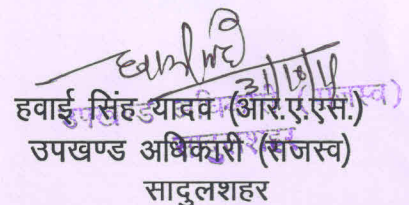 हवाई सिंह यादव (आर.ए.एस.)
उपखण्ड अधिकारी (राजस्व)
सादुलशहर